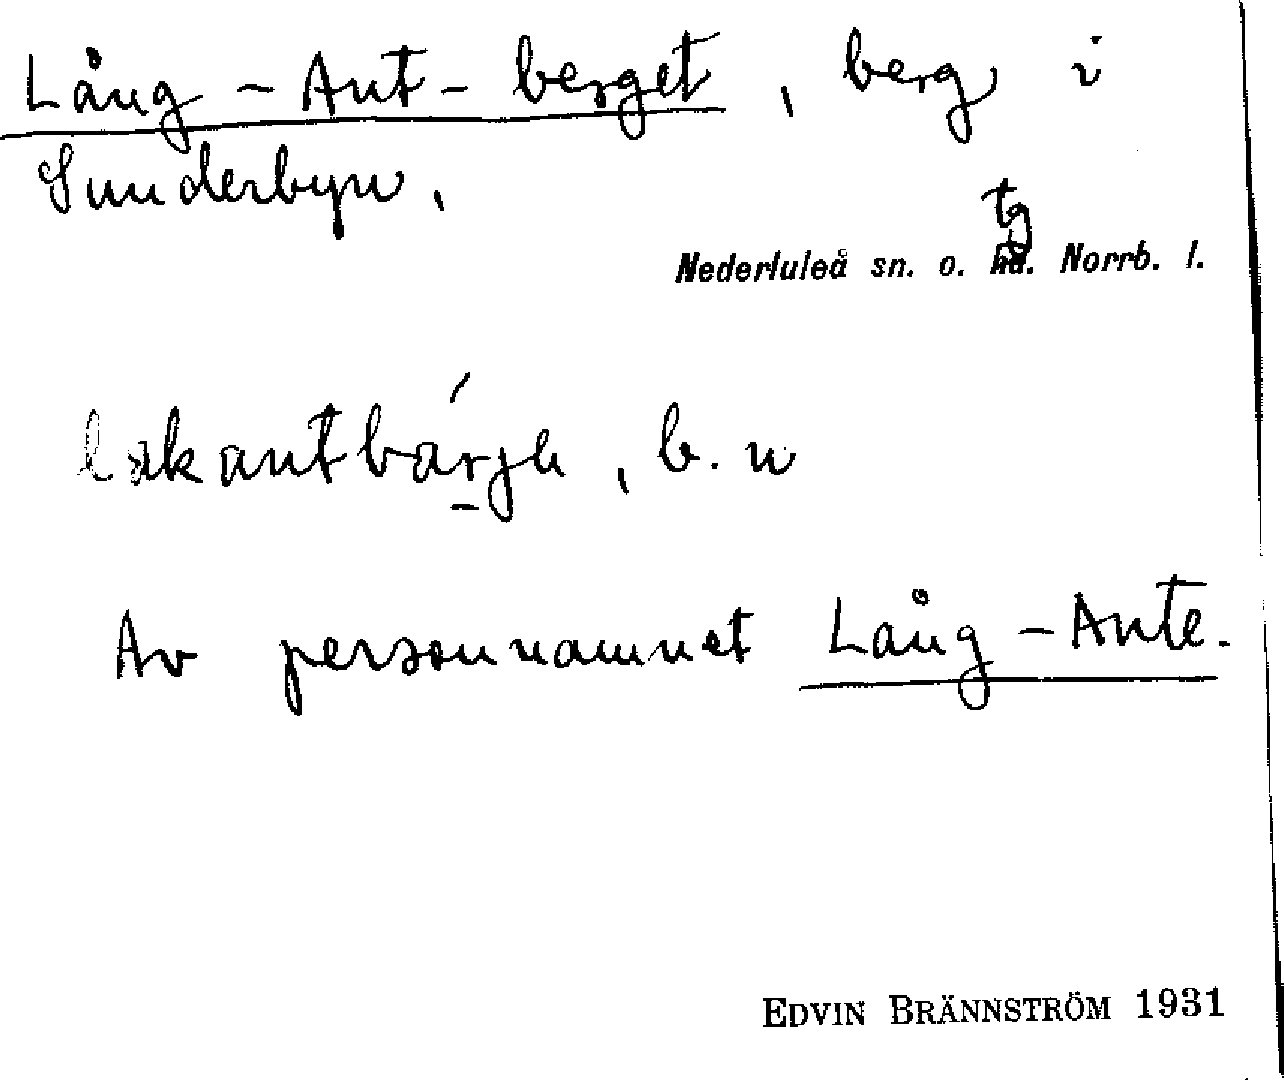 Lång-Ant-berget, berg i
Sunderbyn.
tg
Nederluleå sn. o. hd. Norrb. l.
b. n
Av personnamnet Lång-Ante.
EDVIN BRÄNNSTRÖM 1931